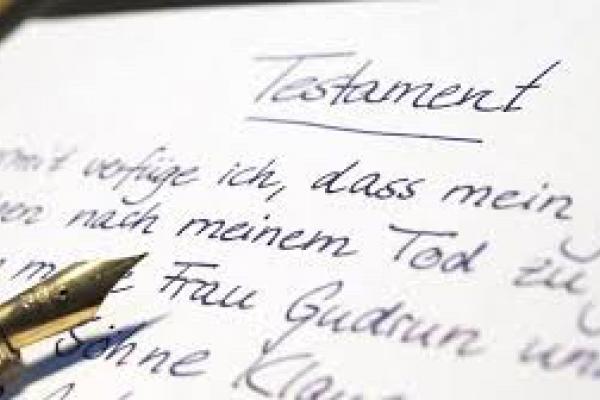 Testament
verfüge ich, dass mein
nach meinem Tod zu
Frau Gudrun
Söhne